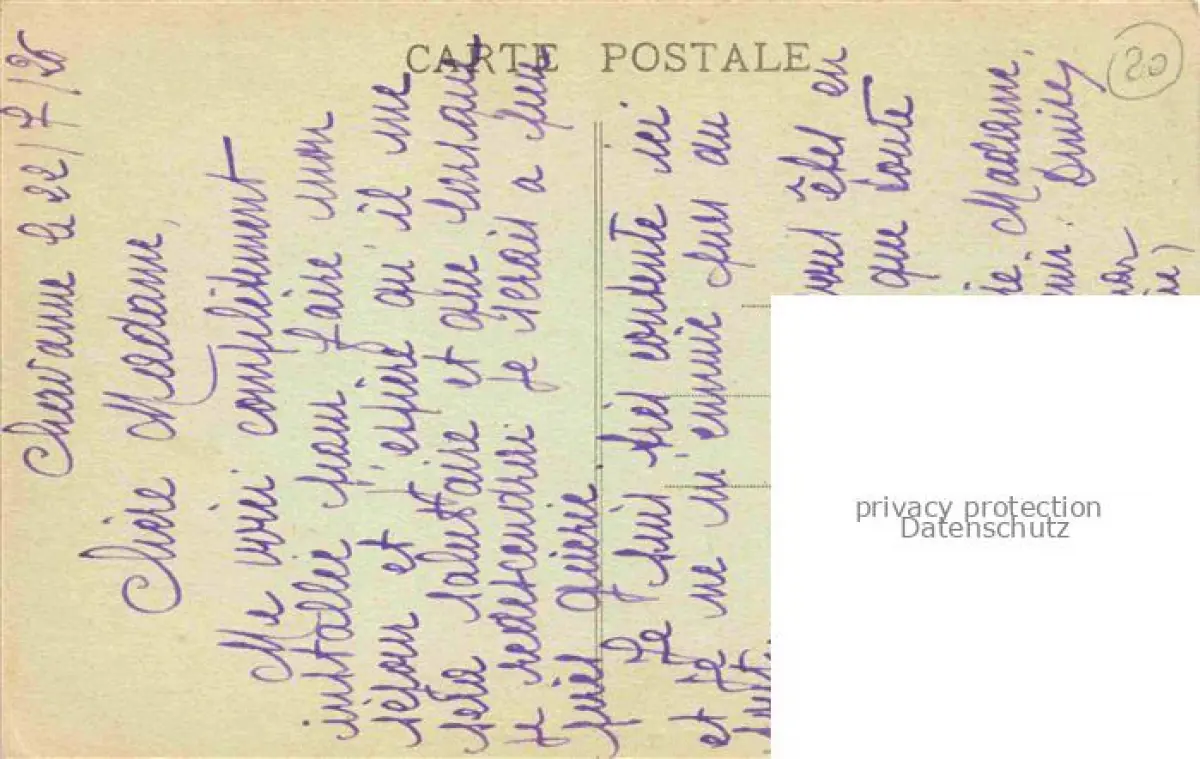 CARTE POSTALE
20
le 22/7/26
Chère Madame,
Me voici complètement
installée pour faire mon
séjour et j'espère qu'il me
sera salutaire et que lorsque
je redescendrai je serai a peu
près guérie
Je suis très contente ici
et je ne m'ennuie pas du
tout.
vous êtes en
que toute
Madame,
privacy protection
Datenschutz